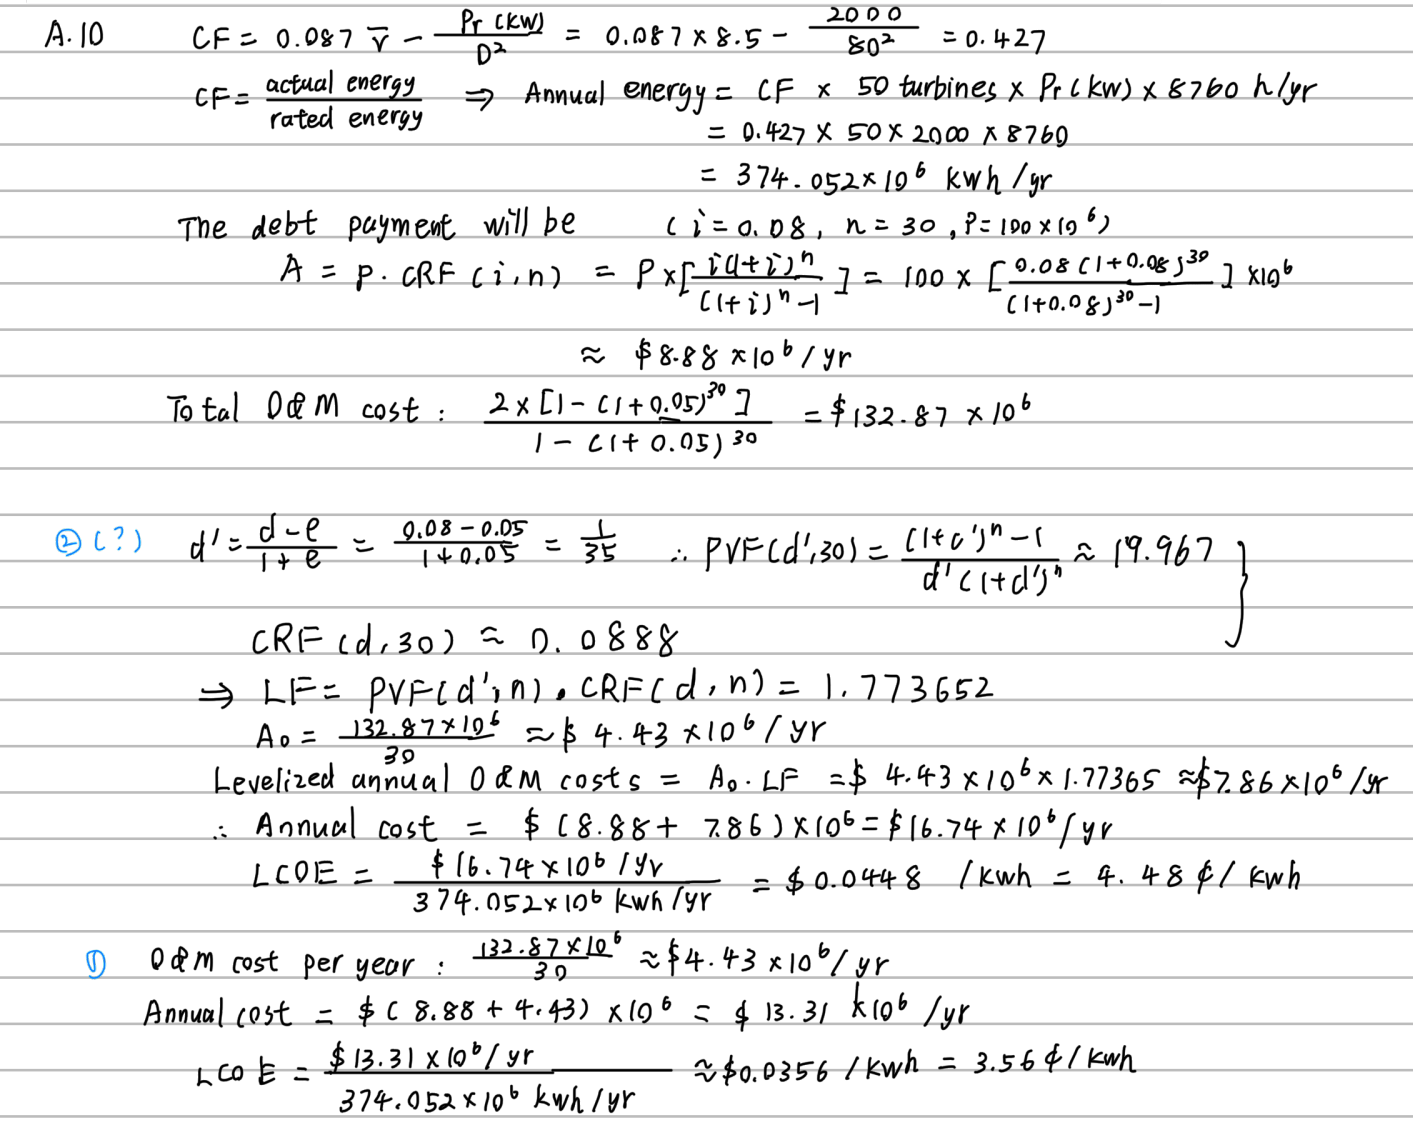 A.10 CF = 0.087 v̅ - Pr (kW) / D² = 0.087 × 8.5 - 2000 / 80² = 0.427
CF = actual energy / rated energy ⇒ Annual energy = CF × 50 turbines × Pr (kW) × 8760 h/yr
= 0.427 × 50 × 2000 × 8760
= 374.052 × 10⁶ kwh / yr
The debt payment will be (i = 0.08, n = 30, P = 100 × 10⁶)
A = P · CRF (i, n) = P × [ i(1+i)ⁿ / (1+i)ⁿ - 1 ] = 100 × [ 0.08 (1+0.08)³⁰ / (1+0.08)³⁰ - 1 ] × 10⁶
≈ $8.88 × 10⁶ / yr
Total O&M cost : 2 × [1 - (1+0.05)³⁰] / 1 - (1+0.05)³⁰ = $132.87 × 10⁶
② (?) d' = d - e / 1 + e = 0.08 - 0.05 / 1 + 0.05 = 1 / 35 ∴ PVF(d', 30) = (1+d')ⁿ - 1 / d'(1+d')ⁿ ≈ 19.967 }
CRF (d, 30) ≈ 0.0888
⇒ LF = PVF(d', n) · CRF(d, n) = 1.773652
A₀ = 132.87 × 10⁶ / 30 ≈ $ 4.43 × 10⁶ / yr
Levelized annual O&M costs = A₀ · LF = $ 4.43 × 10⁶ × 1.77365 ≈ $7.86 × 10⁶ / yr
∴ Annual cost = $ (8.88 + 7.86) × 10⁶ = $16.74 × 10⁶ / yr
LCOE = $16.74 × 10⁶ / yr / 374.052 × 10⁶ kwh / yr = $0.0448 / kwh = 4.48 ¢ / kwh
① O&M cost per year : 132.87 × 10⁶ / 30 ≈ $4.43 × 10⁶ / yr
Annual cost = $ (8.88 + 4.43) × 10⁶ = $ 13.31 × 10⁶ / yr
LCOE = $13.31 × 10⁶ / yr / 374.052 × 10⁶ kwh / yr ≈ $0.0356 / kwh = 3.56 ¢ / kwh